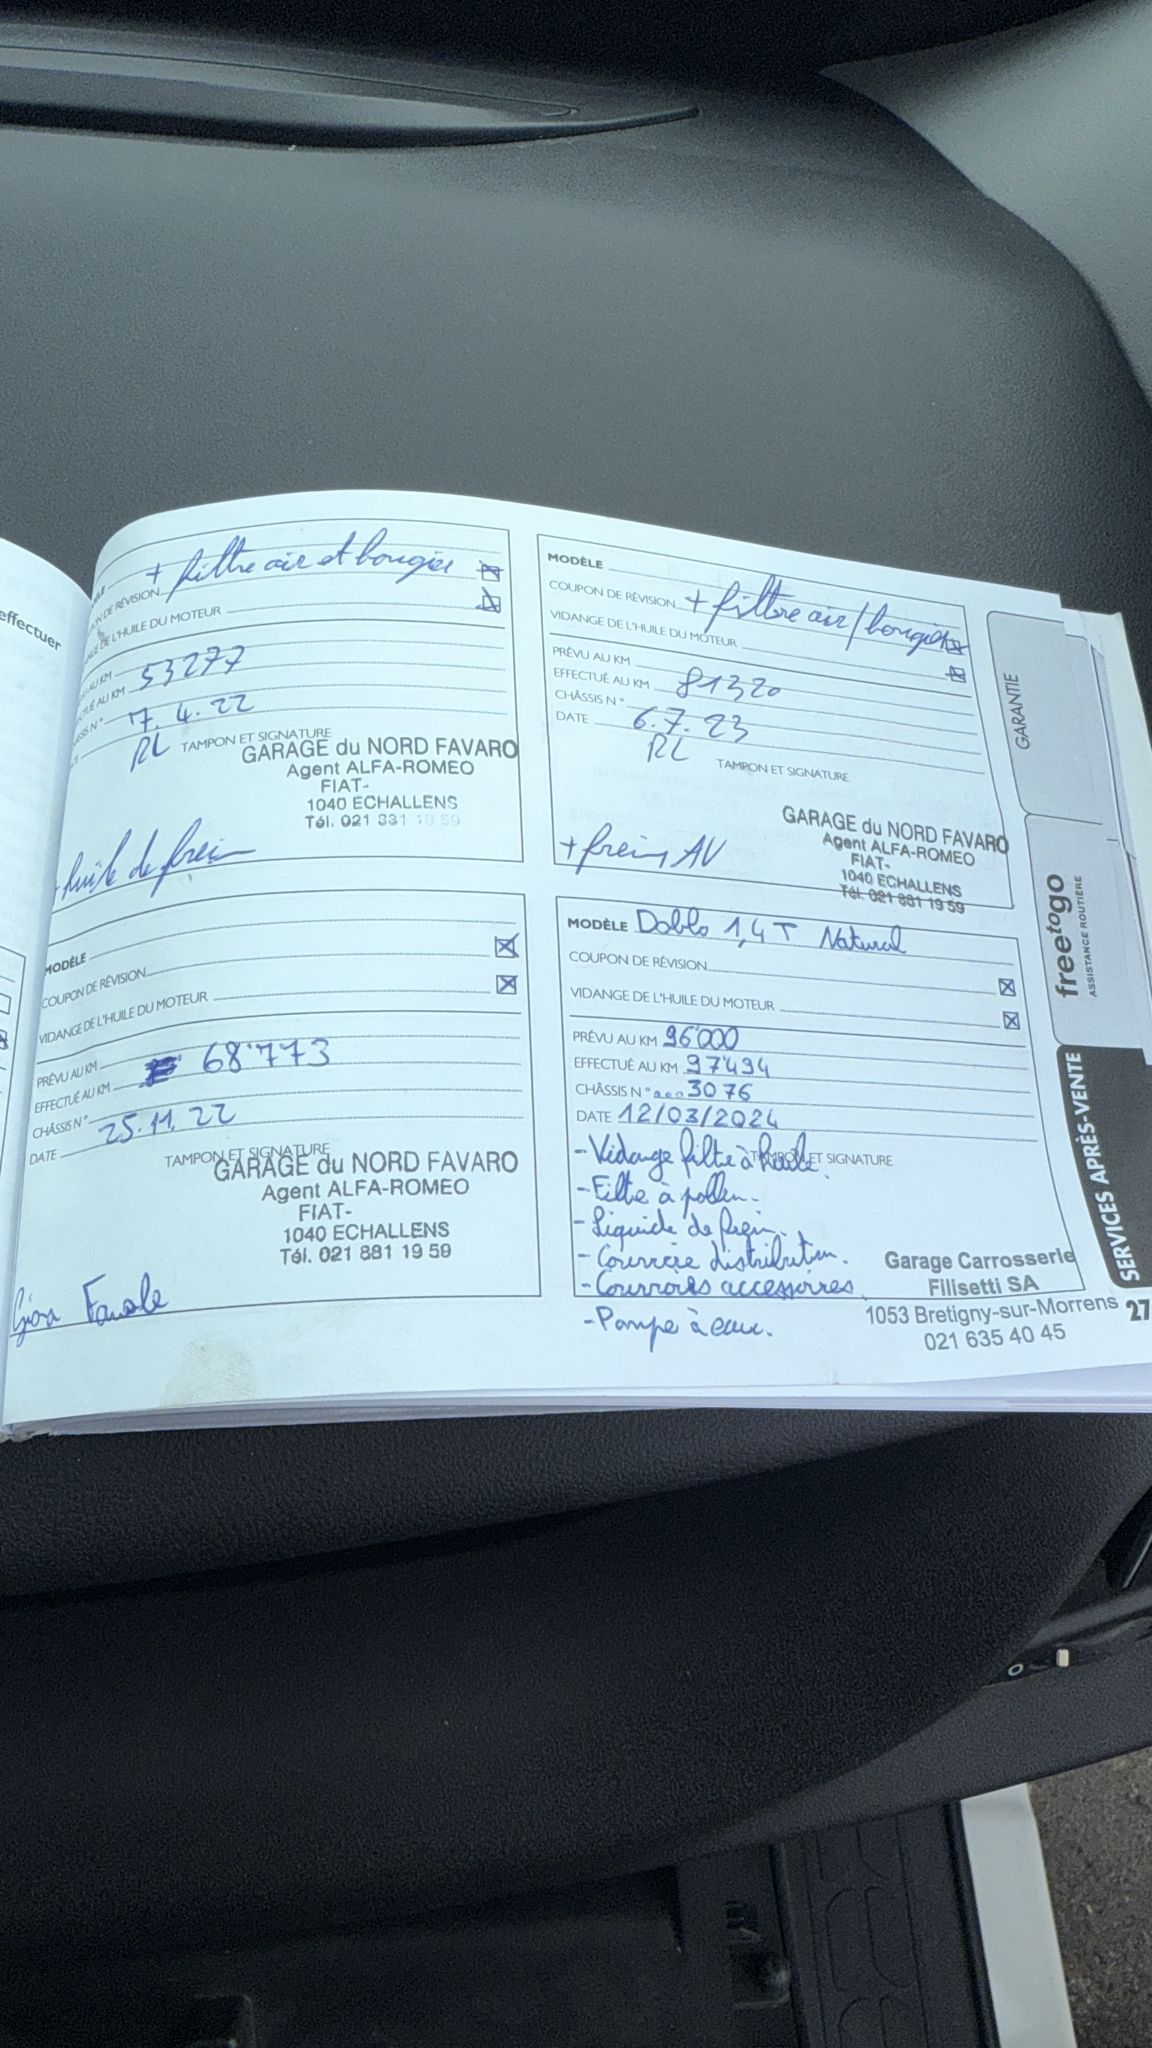 effectuer
+ filtre air et bougies
COUPON DE RÉVISION
VIDANGE DE L'HUILE DU MOTEUR
PRÉVU AU KM
EFFECTUÉ AU KM 53277
CHÂSSIS N°
DATE 7.4.22
RL TAMPON ET SIGNATURE
GARAGE du NORD FAVARO
Agent ALFA-ROMEO
FIAT-
1040 ECHALLENS
Tél. 021 881 19 59
+ huile de frein
MODÈLE
COUPON DE RÉVISION + filtre air/bougies
VIDANGE DE L'HUILE DU MOTEUR
PRÉVU AU KM
EFFECTUÉ AU KM 81320
CHÂSSIS N°
DATE 6.7.23
RL
TAMPON ET SIGNATURE
GARAGE du NORD FAVARO
Agent ALFA-ROMEO
FIAT-
1040 ECHALLENS
Tél. 021 881 19 59
+ freins AV
MODÈLE
COUPON DE RÉVISION
VIDANGE DE L'HUILE DU MOTEUR
PRÉVU AU KM
EFFECTUÉ AU KM 68'773
CHÂSSIS N°
DATE 25.11.22
TAMPON ET SIGNATURE
GARAGE du NORD FAVARO
Agent ALFA-ROMEO
FIAT-
1040 ECHALLENS
Tél. 021 881 19 59
MODÈLE Doblo 1,4 T Natural
COUPON DE RÉVISION
VIDANGE DE L'HUILE DU MOTEUR
PRÉVU AU KM 96'000
EFFECTUÉ AU KM 97'494
CHÂSSIS N° ...3076
DATE 12/03/2024
TAMPON ET SIGNATURE
- Vidange filtre à huile.
- Filtre à pollen.
- Liquide de frein.
- Courroie distribution.
- Courroies accessoires.
- Pompe à eau.
Garage Carrosserie
Filisetti SA
1053 Bretigny-sur-Morrens
021 635 40 45
GARANTIE
freetogo
ASSISTANCE ROUTIÈRE
SERVICES APRÈS-VENTE
27